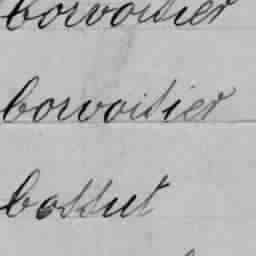 borvoisier
borvoisier
bossut